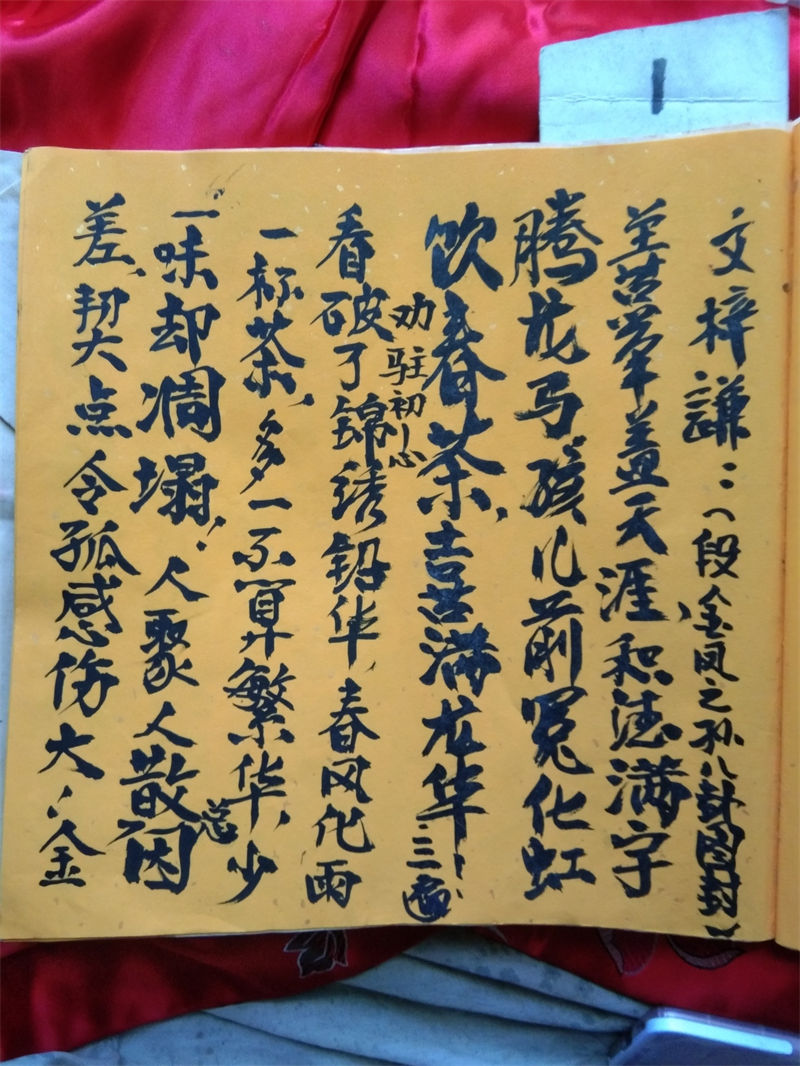 1
文梓谦:(段金凤之孙八卦图封)
羊苦芈羊盖天涯、和德满字
腾龙马孩儿前冤化虹
饮春茶,喜满龙华三遍
劝驻初心
看破了锦绣铅华,春风化雨
一杯茶,多一不算繁华,少
一味却凋塌!人聚人散总因
差,契点令孤感伤大、金